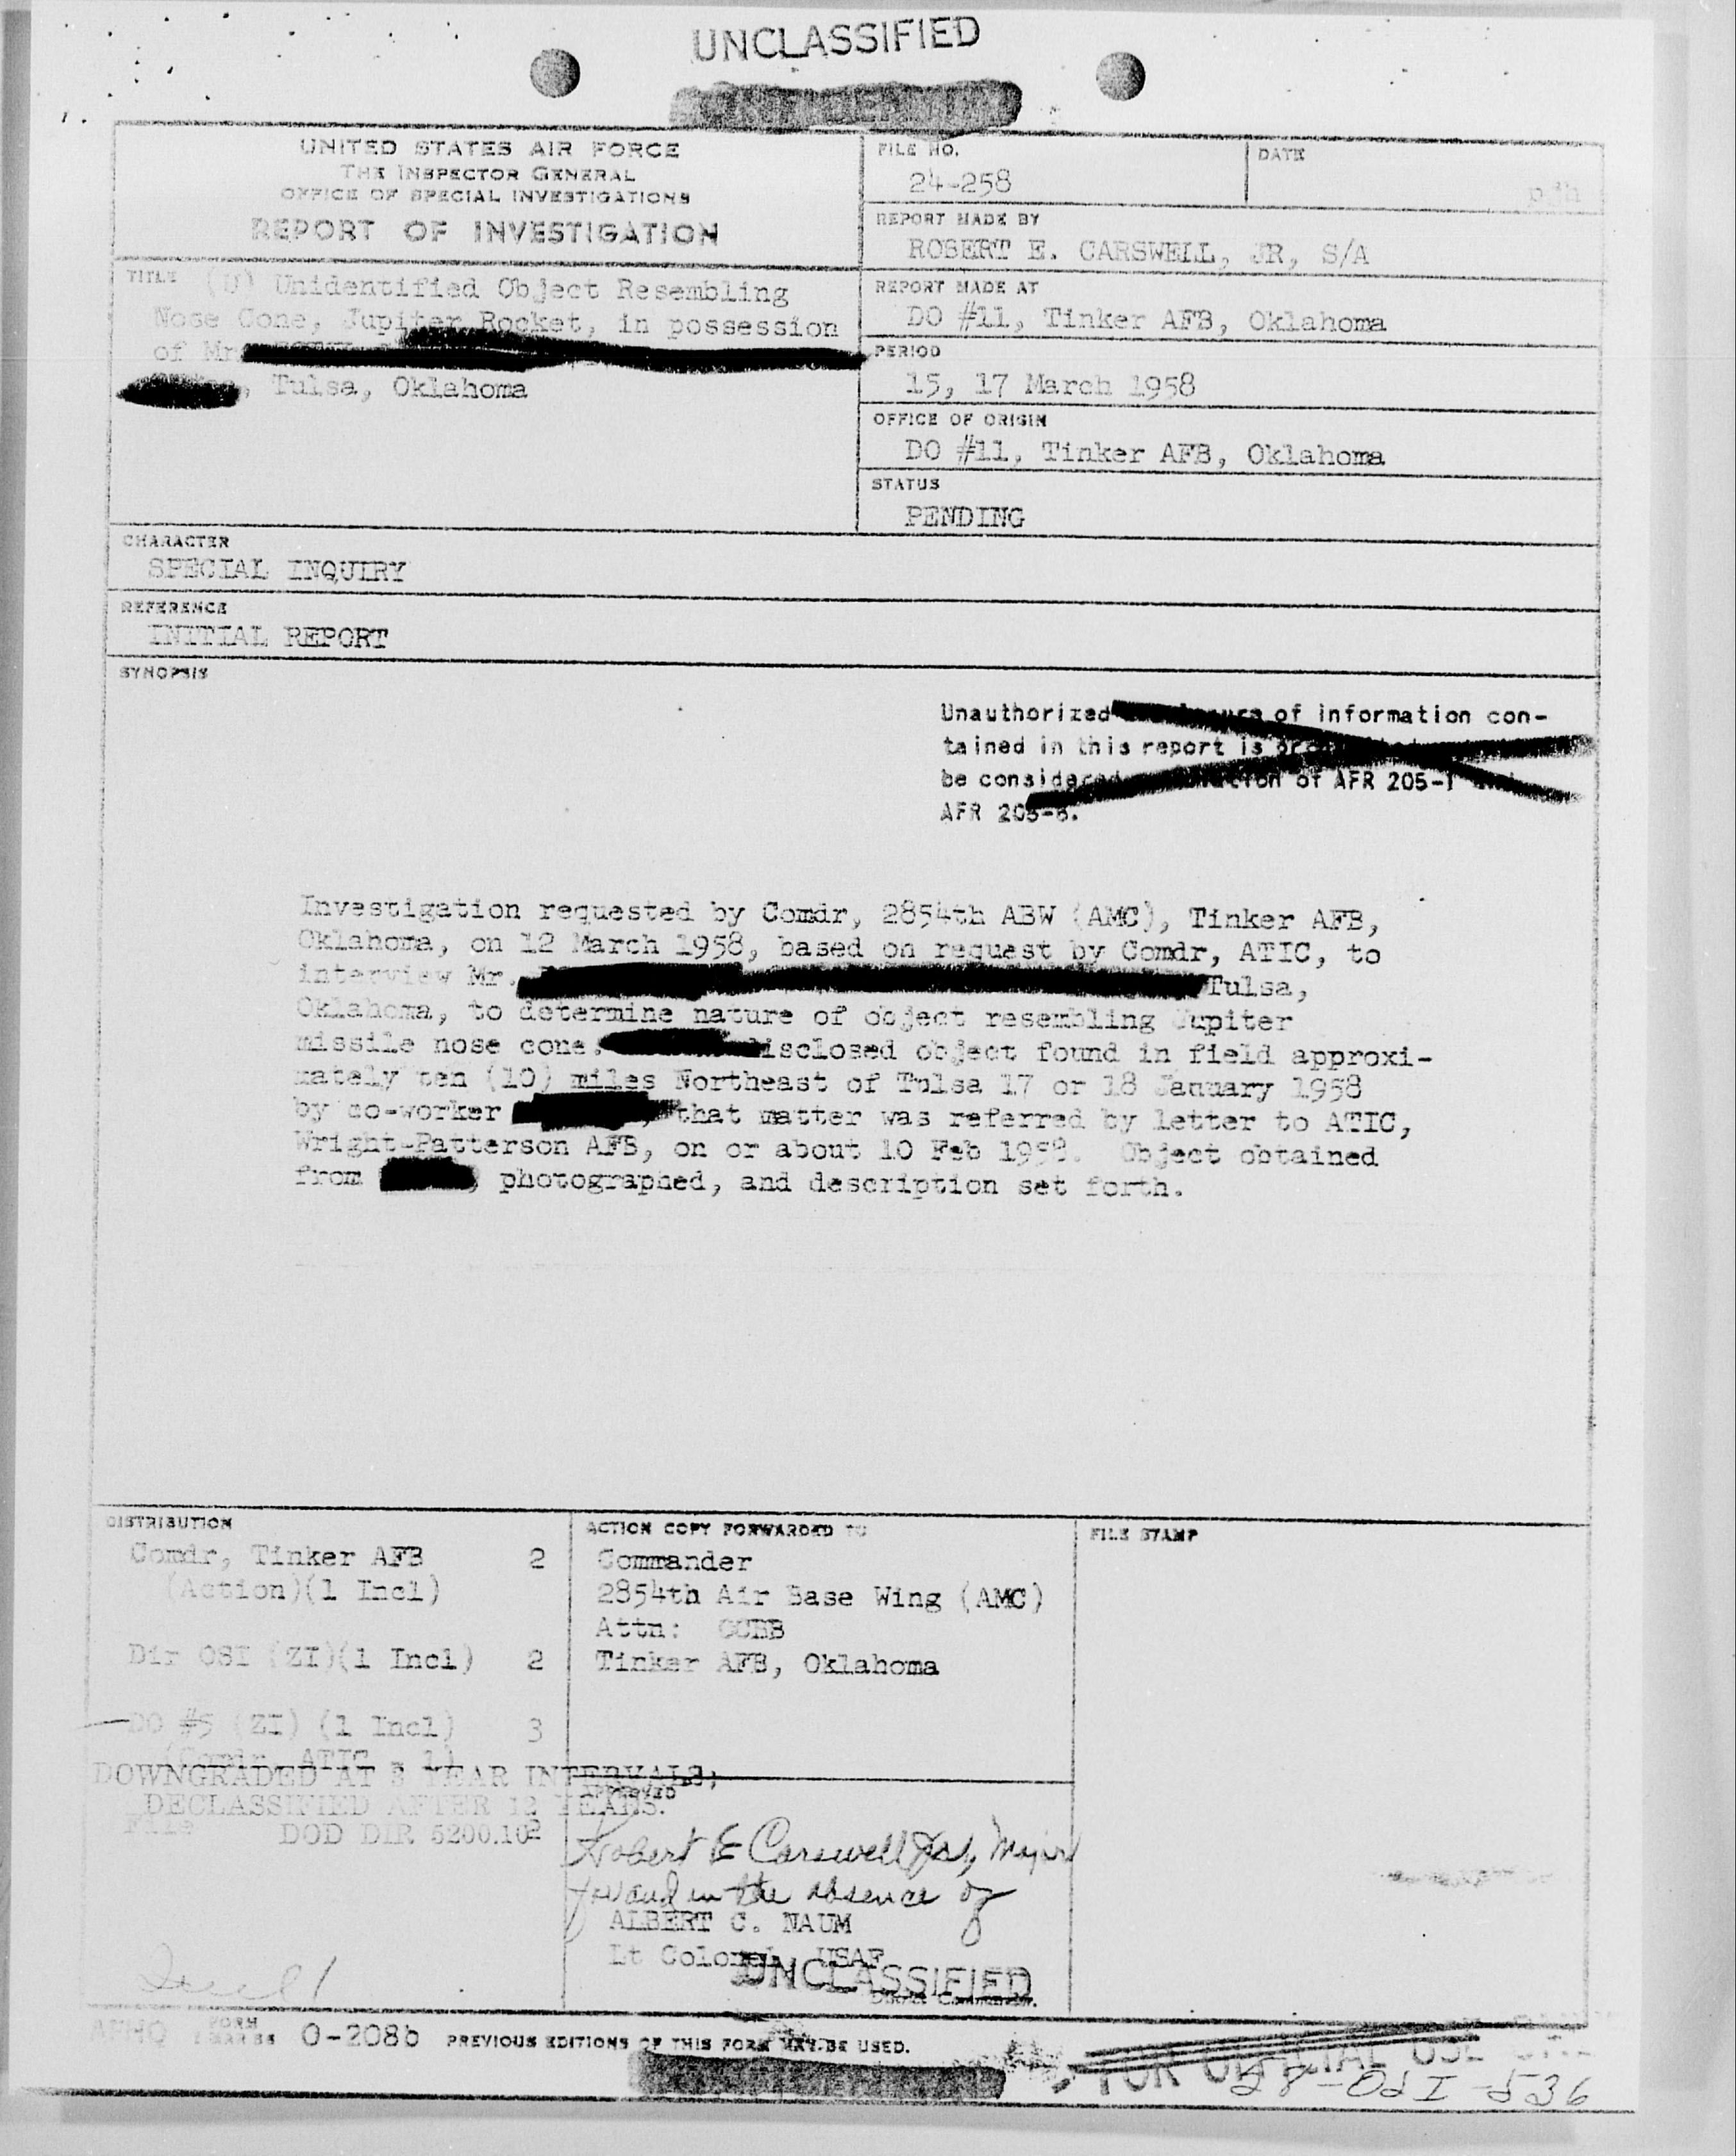 UNCLASSIFIED
UNITED STATES AIR FORCE
THE INSPECTOR GENERAL
OFFICE OF SPECIAL INVESTIGATIONS
REPORT OF INVESTIGATION
FILE NO.
24-258
DATE
REPORT MADE BY
ROBERT E. CARSWELL, JR, S/A
TITLE (U) Unidentified Object Resembling
Nose Cone, Jupiter Rocket, in possession
of Mr
, Tulsa, Oklahoma
REPORT MADE AT
DO #11, Tinker AFB, Oklahoma
PERIOD
15, 17 March 1958
OFFICE OF ORIGIN
DO #11, Tinker AFB, Oklahoma
STATUS
PENDING
CHARACTER
SPECIAL INQUIRY
REFERENCE
INITIAL REPORT
SYNOPSIS
Unauthorized of information con-
tained in this report is
be considered of AFR 205-1
AFR 205-6.
Investigation requested by Comdr, 2854th ABW (AMC), Tinker AFB,
Oklahoma, on 12 March 1958, based on request by Comdr, ATIC, to
interview Mr. Tulsa,
Oklahoma, to determine nature of object resembling Jupiter
missile nose cone. disclosed object found in field approxi-
mately ten (10) miles Northeast of Tulsa 17 or 18 January 1958
by co-worker , that matter was referred by letter to ATIC,
Wright-Patterson AFB, on or about 10 Feb 1958. Object obtained
from , photographed, and description set forth.
DISTRIBUTION
Comdr, Tinker AFB 2
(Action)(1 Incl)
Dir OSI (ZI)(1 Incl) 2
DO #5 (ZI) (1 Incl) 3
(Comdr, ATIC - 1)
DOWNGRADED AT 3 YEAR INTERVALS;
DECLASSIFIED AFTER 12 YEARS.
File 2
DOD DIR 5200.10
ACTION COPY FORWARDED TO
Commander
2854th Air Base Wing (AMC)
Attn: CCEB
Tinker AFB, Oklahoma
FILE STAMP
APPROVED
Robert E Carswell Jr, Major
for and in the absence of
ALBERT C. NAUM
Lt Colonel, USAF
UNCLASSIFIED
AFHQ FORM 0-208b PREVIOUS EDITIONS OF THIS FORM MAY BE USED.
FOR OFFICIAL USE